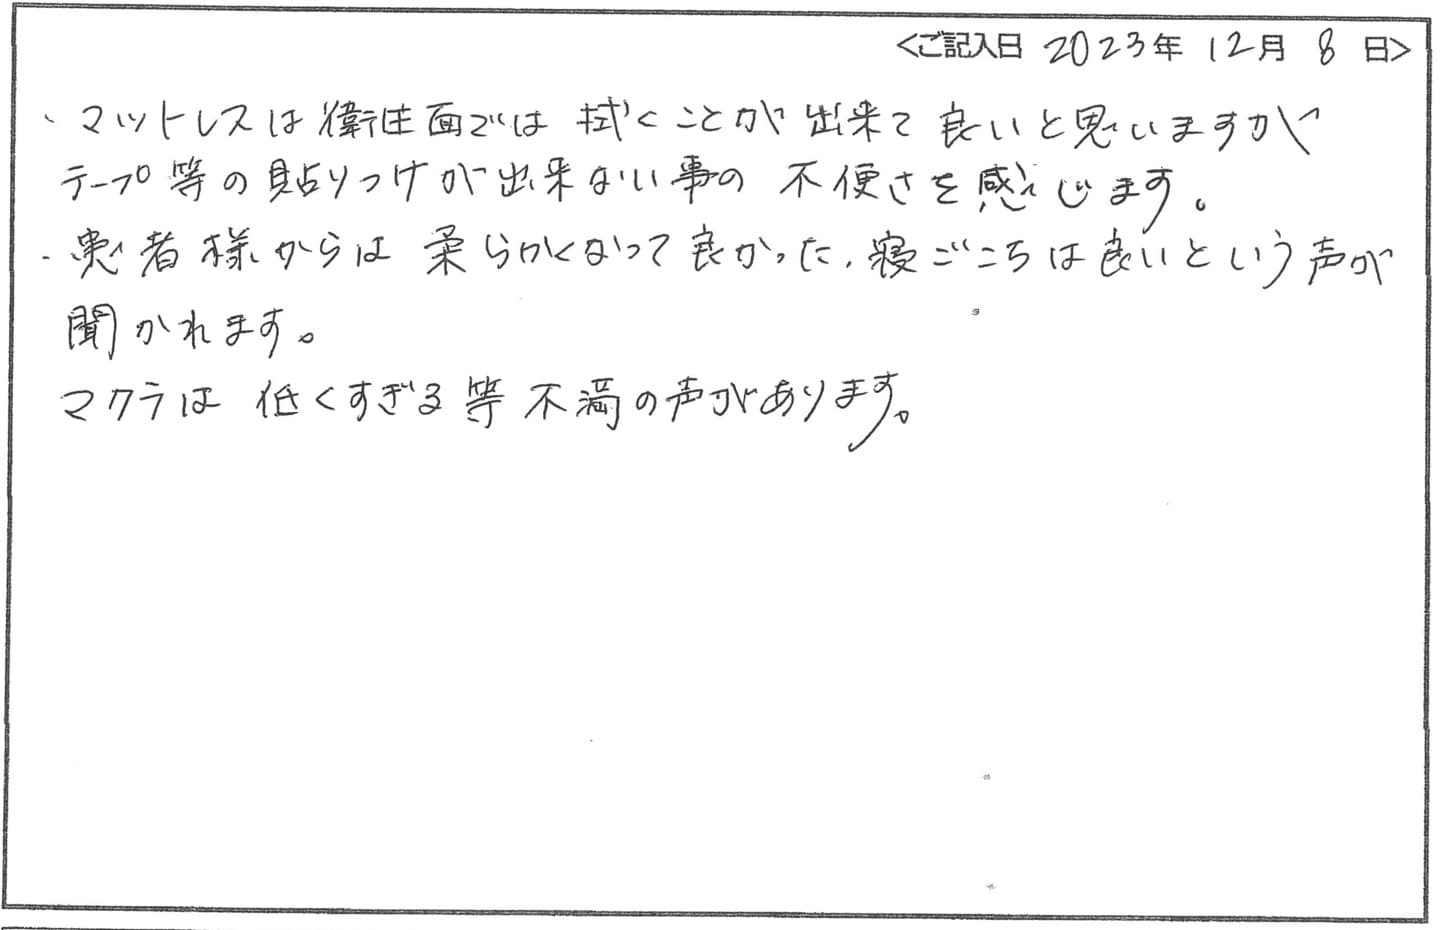 <ご記入日 2023年 12月 8日>
・マットレスは衛生面では 拭くことが出来て良いと思いますが
テープ等の貼りつけが出来ない事の 不便さを感じます。
・患者様からは 柔らかくなって良かった、寝ごこちは良いという声が
聞かれます。
マクラは 低くすぎる等 不満の声があります。